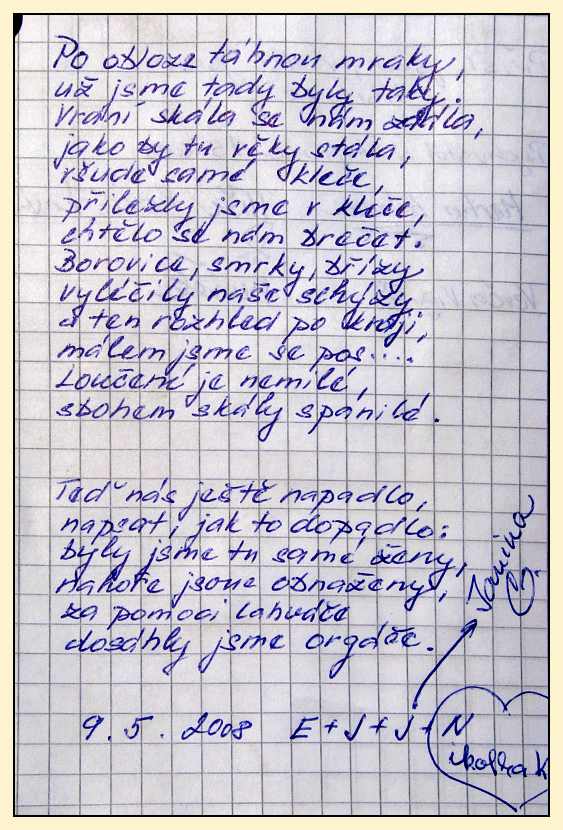 Po obloze táhnou mraky,
už jsme tady byly taky.
Vraní skála se nám zdála,
jako by tu věky stála,
všude samé kleče,
přilezly jsme v kleče,
chtělo se nám brečet.
Borovice, smrky, břízy
vyléčily naše schýzy
a ten rozhled po kraji,
málem jsme se pos....
Loučení je nemilé,
sbohem skály spanilé.
Teď nás ještě napadlo,
napsat, jak to dopadlo:
byly jsme tu samé ženy,
nahoře jsme obnaženy,
za pomoci lahváče
dosáhly jsme orgáče.
Janina
9. 5. 2008 E + J + J + N